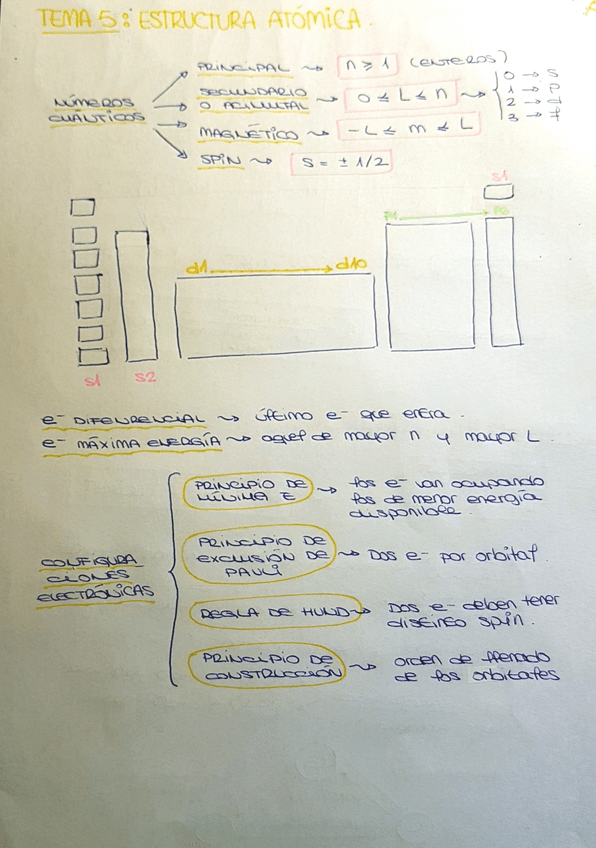 TEMA 5: ESTRUCTURA ATÓMICA.
NÚMEROS CUÁNTICOS
PRINCIPAL → n ≥ 1 (ENTEROS)
SECUNDARIO O ACIMUTAL → 0 ≤ L ≤ n →
0 → s
1 → p
2 → d
3 → f
MAGNÉTICO → -L ≤ m ≤ L
SPIN → S = ± 1/2
S1
P1 → P6
d1 → d10
S1
S2
e- DIFERENCIAL → último e- que entra.
e- MÁXIMA ENERGÍA → aquel de mayor n y mayor L.
CONFIGURA
CIONES
ELECTRÓNICAS
PRINCIPIO DE
MÍNIMA E
→ los e- van ocupando
los de menor energía
disponible.
PRINCIPIO DE
EXCLUSIÓN DE
PAULI
→ Dos e- por orbital.
REGLA DE HUND → Dos e- deben tener
distinto spin.
PRINCIPIO DE
CONSTRUCCIÓN
→ orden de llenado
de los orbitales